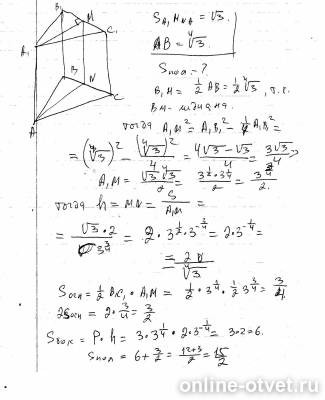 B₁
M
A₁
C₁
B
N
C
A
S A₁MNA = √3.
AB = ∜3.
Sпол = ?
B₁M = ½ AB = ½ ∜3, т.к.
BM - медиана.
тогда A₁M² = A₁B₁² - ¼ A₁B₁² =
= (∜3)² - (∜3)²/4 = (4√3 - √3)/4 = 3√3/4
A₁M = √3 ∜3 / 2 = 3^½ · 3^¼ / 2 = 3^¾ / 2.
тогда h = MN = S / A₁M =
= √3 · 2 / 3^¾ = 2 · 3^½ · 3^-¾ = 2 · 3^-¼ =
= 2 / ∜3
Sосн = ½ B₁C₁ · A₁M = ½ · 3^¼ · ½ 3^¾ = 3/4
2Sосн = 2 · 3/4 = 3/2
Sбок = P · h = 3 · 3^¼ · 2 · 3^-¼ = 3 · 2 = 6.
Sпол = 6 + 3/2 = (12+3)/2 = 15/2
online-otvet.ru